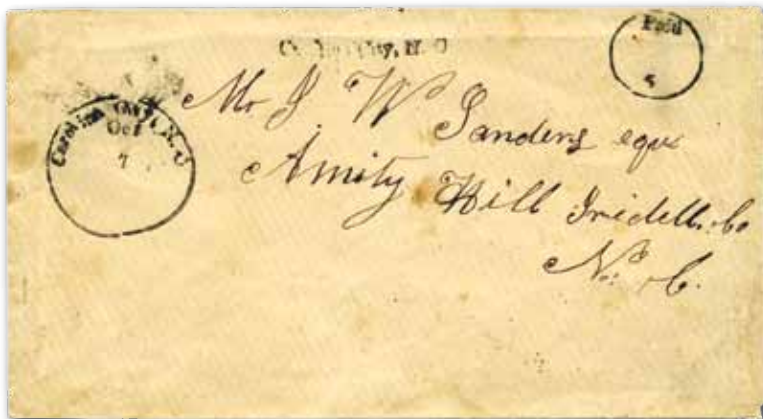 Carolina City, N. C
Paid
5
Carolina City, N. C
Oct
7
Mr J. W Sanders esqr
Amity Hill Iredell. Co
N. C.